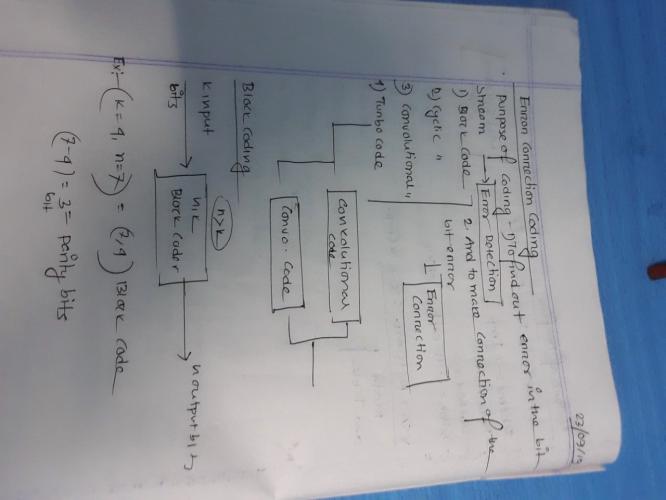 23/09/19
Error Correction Coding
Purpose of coding - 1) To find out error in the bit
stream → Error Detection
2. And to make correction of the
bit error
↓ Error Correction
1) Block code
2) Cyclic "
3) Convolutional "
1) Turbo code
Convolutional code
Convo. code
Block Coding
n>k
k input bits
n,k Block coder
n output bits
Ex:- (k=4, n=7) = (7,4) Block code
(7-4) = 3 = parity bits
bit